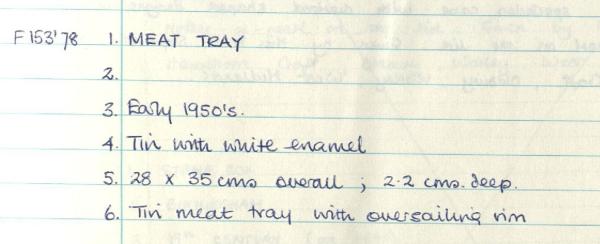 F153'78 1. MEAT TRAY
2.
3. Early 1950's.
4. Tin with white enamel
5. 28 x 35 cms overall ; 2.2 cms. deep.
6. Tin meat tray with oversailing rim